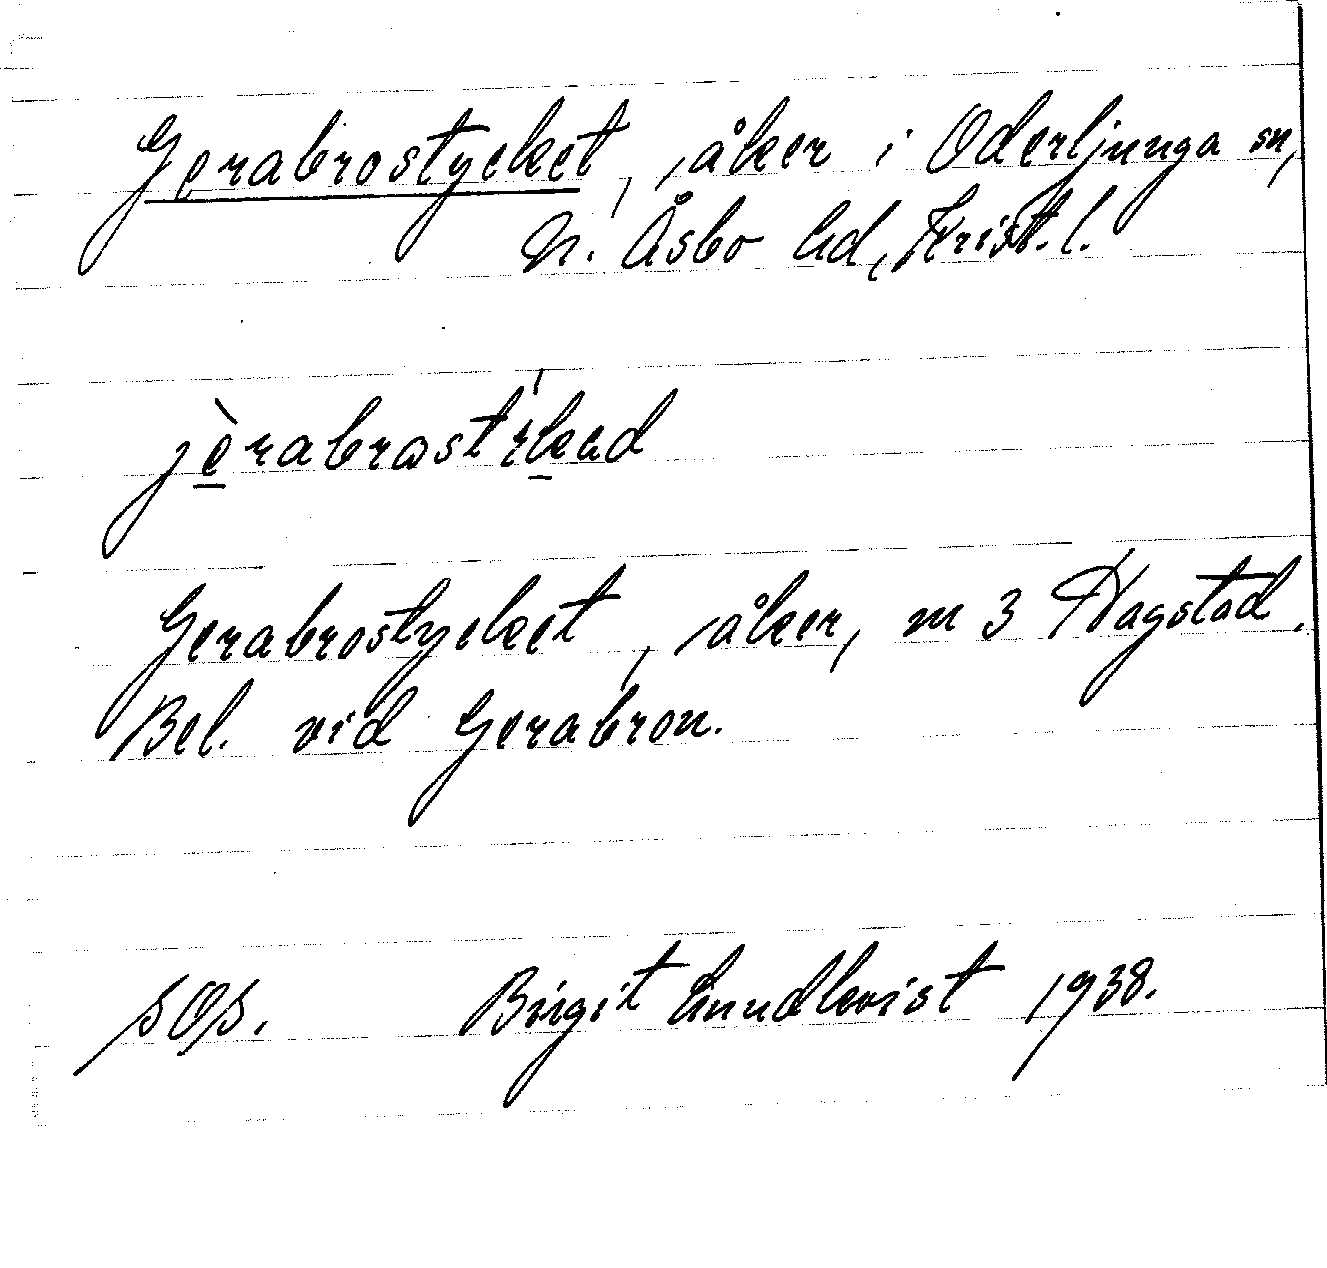 Gerabrostycket, åker i Oderljunga sn,
N. Åsbo hd, Krist. l.
Gerabrostycket, åker, m 3 Hagstad.
Bel. vid Gerabron.
SOS. Birgit Lundkvist 1938.